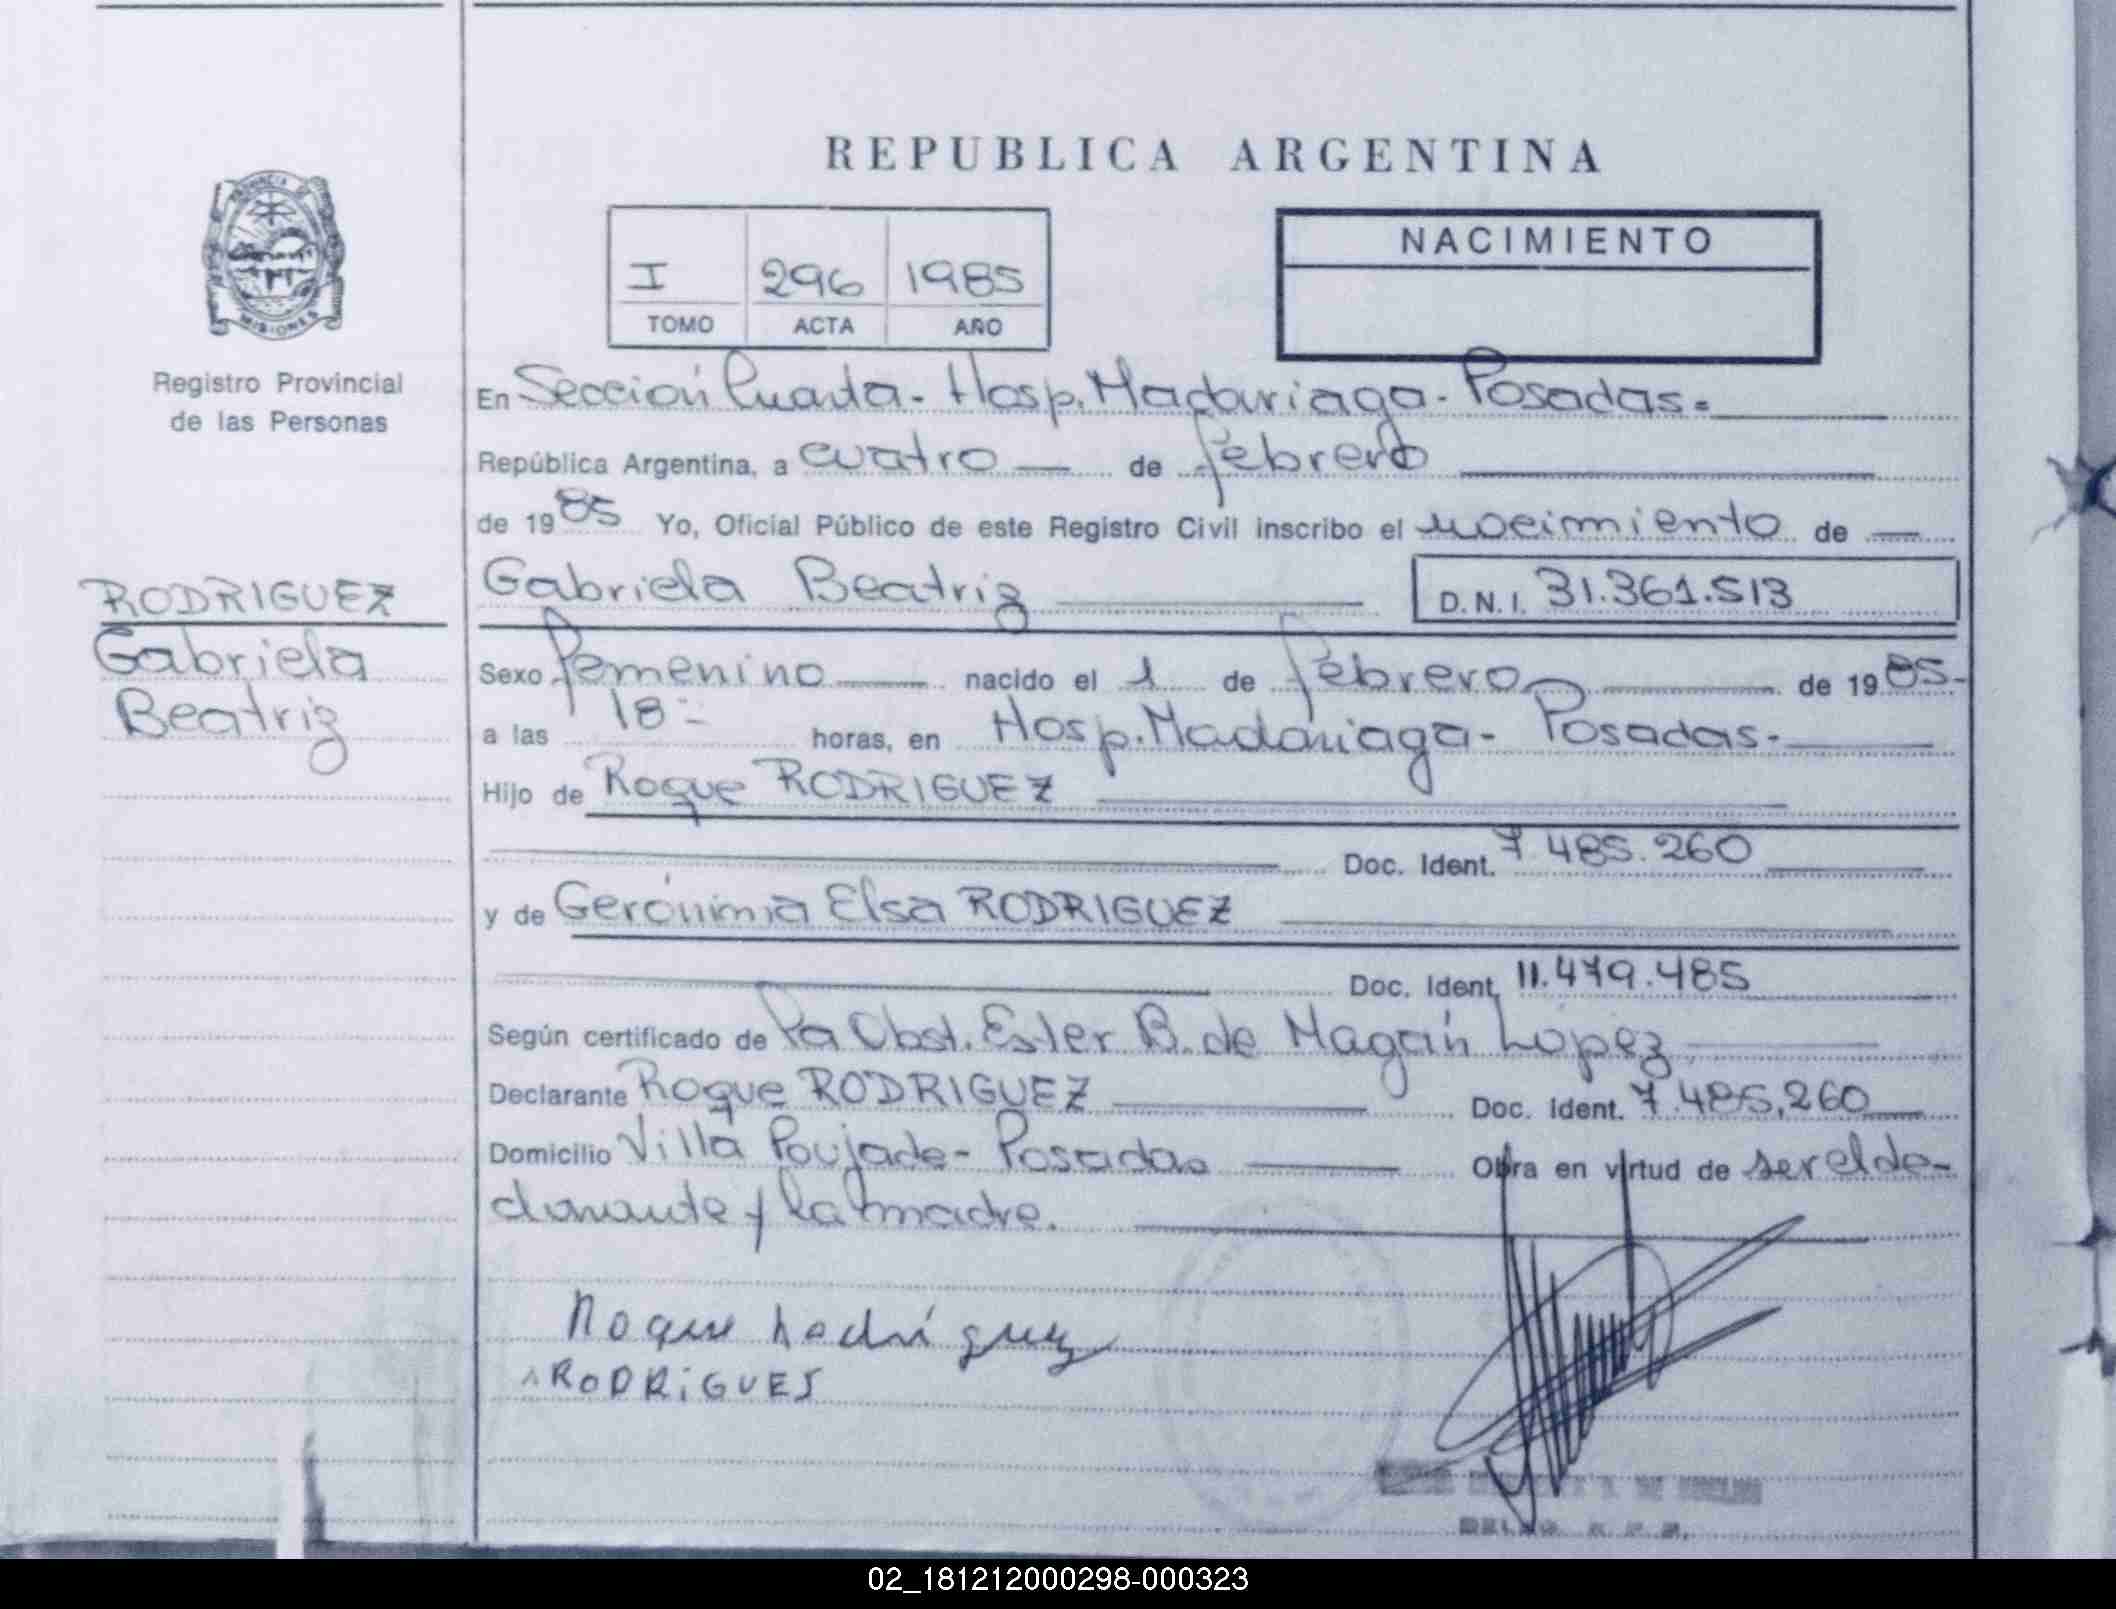 REPUBLICA ARGENTINA
PROVINCIA DE
MISIONES
Registro Provincial
de las Personas
I 296 1985
TOMO ACTA AÑO
NACIMIENTO
En Sección Cuarta - Hosp. Madariaga - Posadas.
República Argentina, a cuatro de febrero
de 1985 Yo, Oficial Público de este Registro Civil inscribo el nacimiento de
Gabriela Beatriz D.N.I. 31.361.513
RODRIGUEZ
Gabriela
Beatriz
Sexo femenino nacido el 1 de febrero de 1985-
a las 18- horas, en Hosp. Madariaga - Posadas.
Hijo de Roque RODRIGUEZ
Doc. Ident. 7.485.260
y de Gerónima Elsa RODRIGUEZ
Doc. Ident. 11.479.485
Según certificado de Pa Obst. Ester B. de Magán López
Declarante Roque RODRIGUEZ Doc. Ident. 7.485.260
Domicilio Villa Poujade - Posadas Obra en virtud de ser el de-
clarante y la madre.
Roque Rodríguez
RODRiGUES
02_181212000298-000323